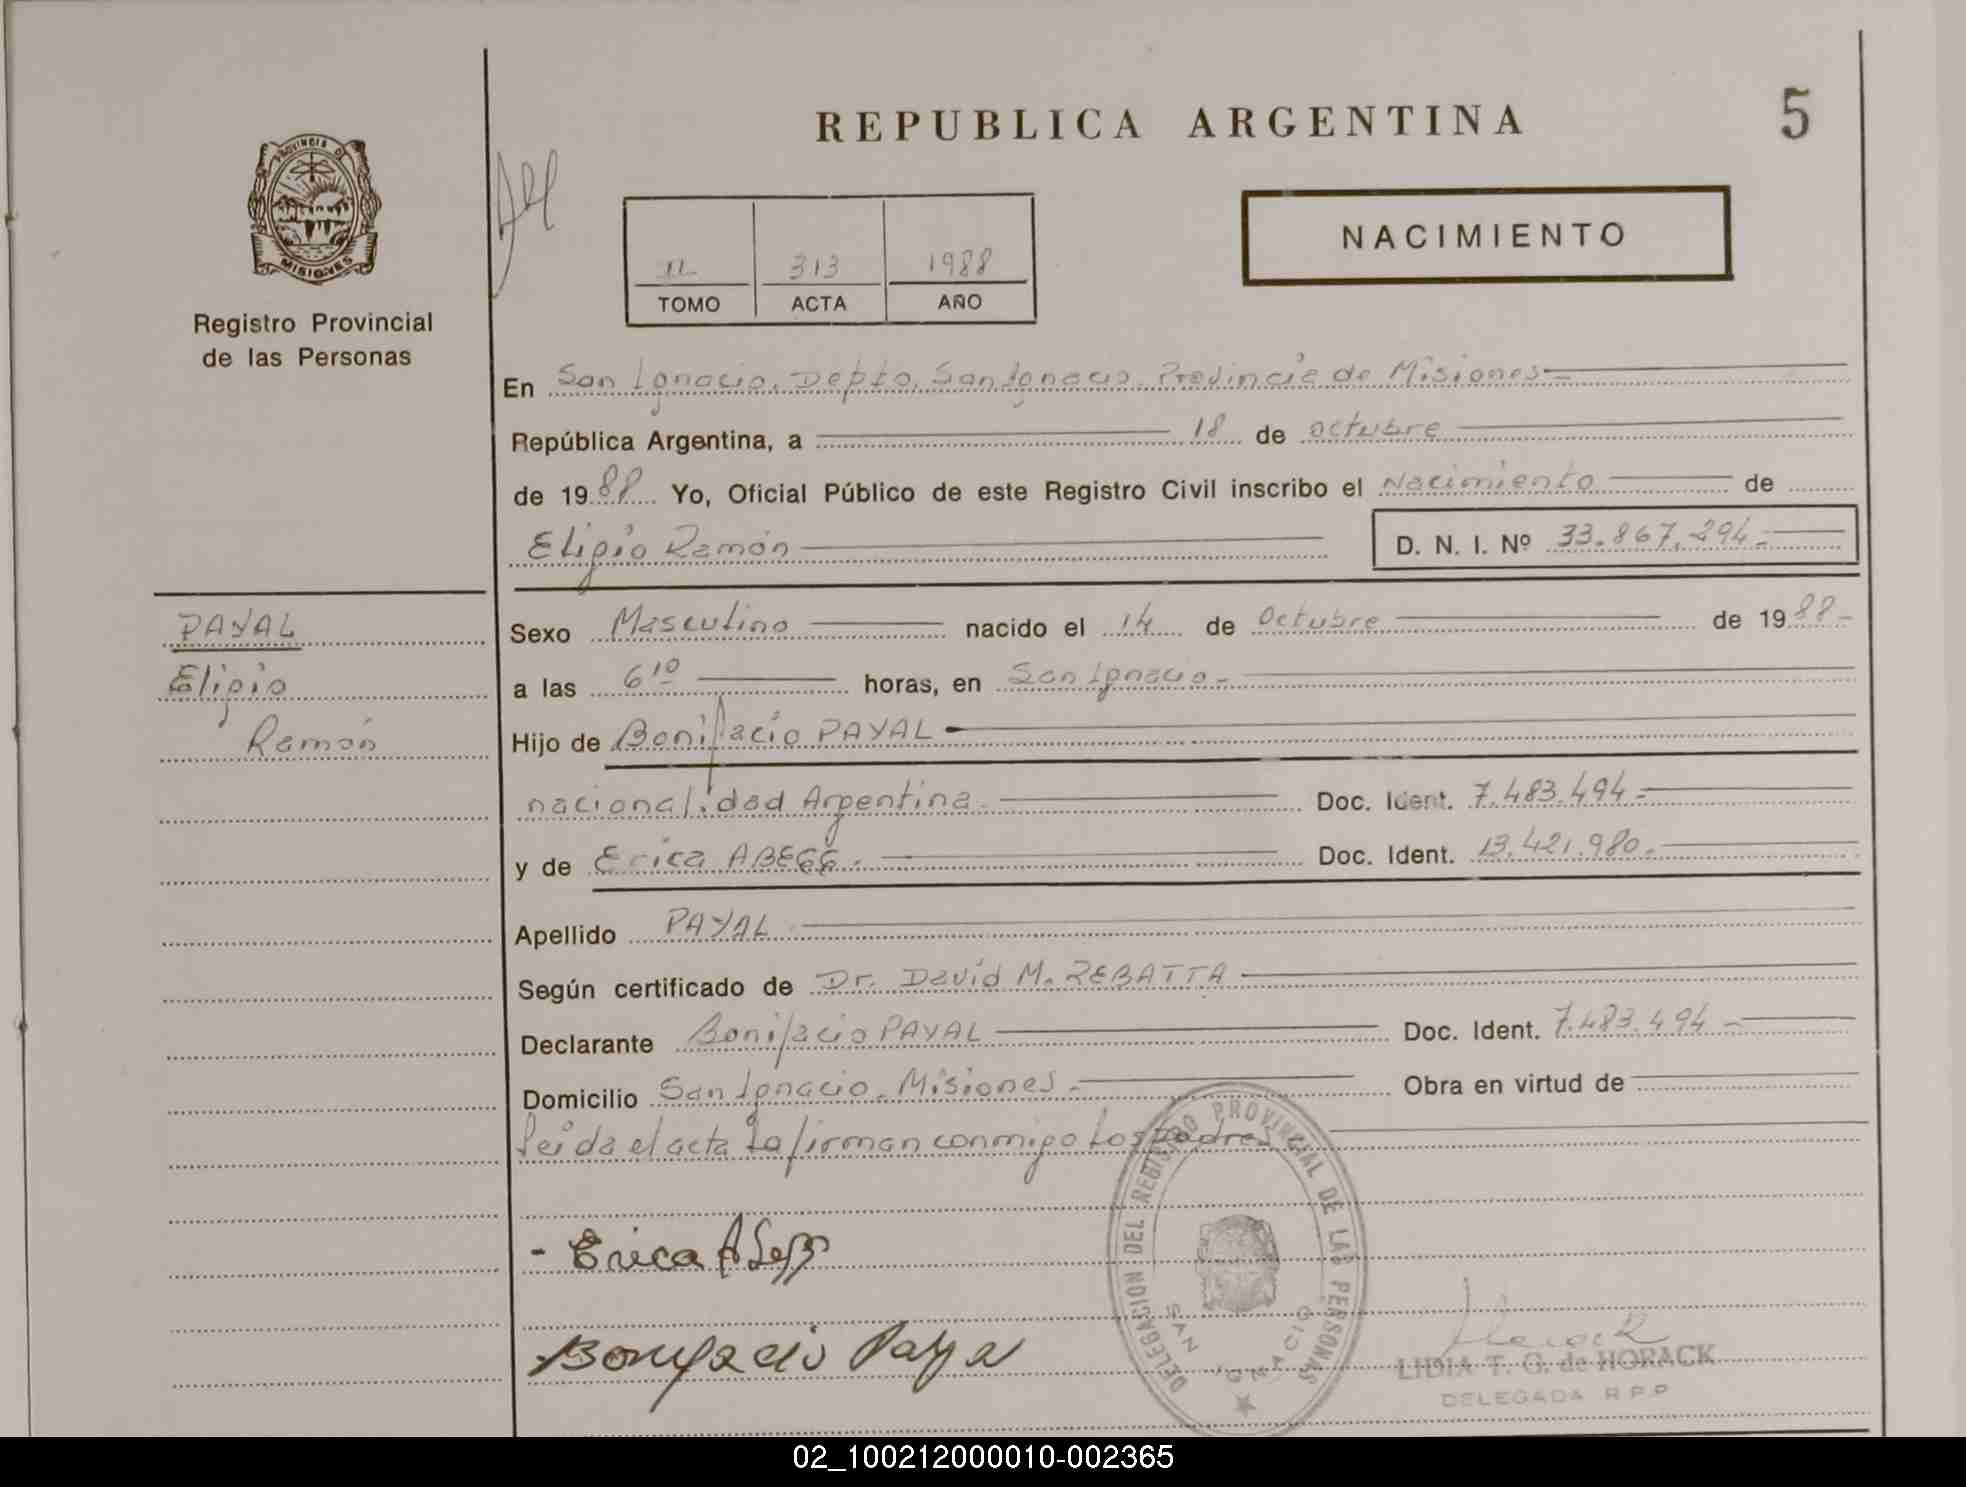 REPUBLICA ARGENTINA
5
PROVINCIA DE
MISIONES
Registro Provincial
de las Personas
II 313 1988
TOMO ACTA AÑO
NACIMIENTO
En San Ignacio, Depto. San Ignacio. Provincia de Misiones
República Argentina, a 18 de octubre
de 1988 Yo, Oficial Público de este Registro Civil inscribo el Nacimiento de
Eligio Ramón D. N. I. Nº 33.867.294.-
PAYAL
Eligio
Ramón
Sexo Masculino nacido el 14 de Octubre de 1988-
a las 6 10 horas, en San Ignacio.-
Hijo de Bonifacio PAYAL
nacionalidad Argentina. Doc. Ident. 7.483.494-
y de Erica ABEGG.- Doc. Ident. 13.421.980.-
Apellido PAYAL
Según certificado de Dr. David M. ZEBATTA
Declarante Bonifacio PAYAL Doc. Ident. 7.483.494-
Domicilio San Ignacio. Misiones.- Obra en virtud de
Leida el acta la firman conmigo los padres
DELEGACION DEL REGISTRO PROVINCIAL DE LAS PERSONAS
SAN IGNACIO
- Erica Abegg
Bonifacio Paya
LIDIA T. G. de HORACK
DELEGADA R.P.P
02_100212000010-002365